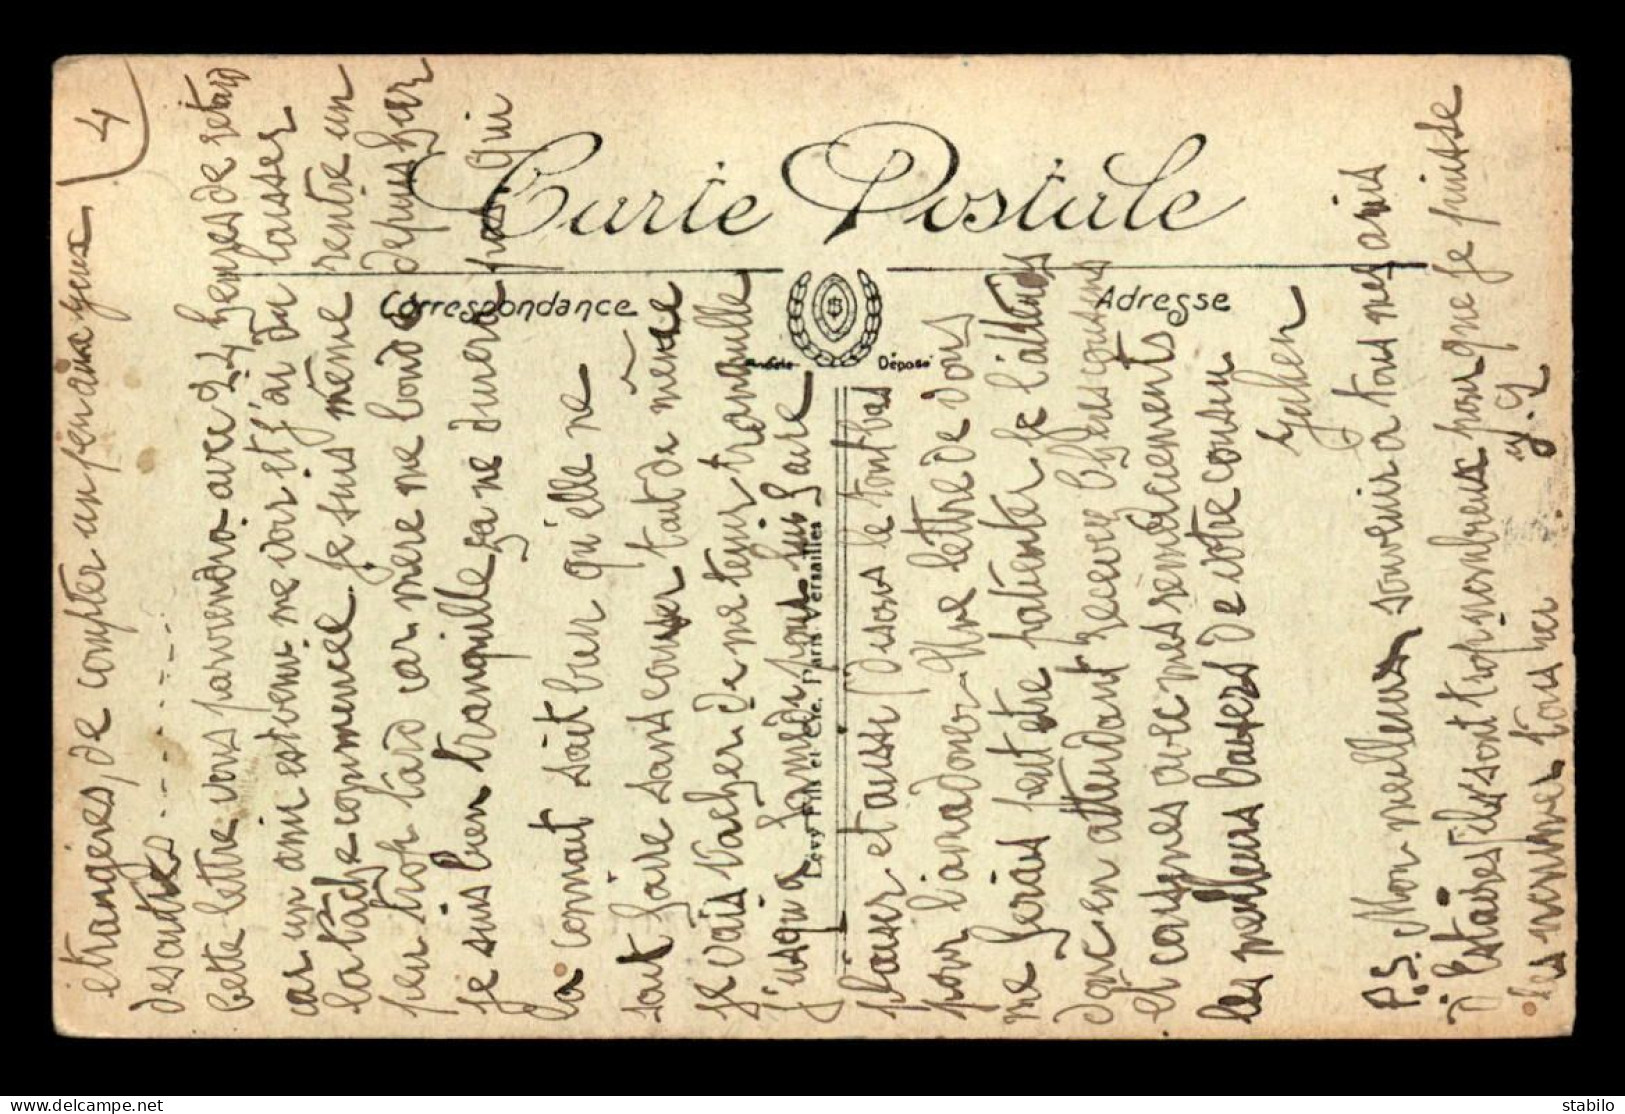 4
étrangères, de compter un peu aux yeux
des autres --------
Cette lettre vous parviendra avec 24 heures de retard
car un ami est venu me voir et j'ai du laisser
la tâche commencé. Je suis même rentré un
peu trop tard car mère me boude depuis hier
je suis bien tranquille ça ne durera pas qui
la connait sait bien qu'elle ne
saurait faire sans causer tout de même
je vais tacher de me tenir tranquille
jusqu'a pour lui faire
plaisir et aussi (disons le tout bas
pour l'amadouer. Une lettre de vous
me ferais peut etre patienter je l'attends
donc en attendant recevez chères cousines
et cousines avec mes remerciements
les meilleurs baisers de votre cousin
P.S. Mon meilleur souvenir a tous mes amis
d'Estaires (ils sont trop nombreux pour que je puisse
les nommer tous ici. Y. G
Carte Postale
Correspondance
Adresse
Modèle Déposé
Lévy Fils et Cie, Paris-Versailles
stabilo